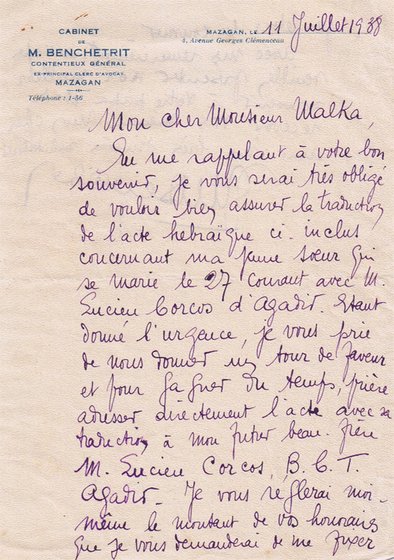 CABINET
DE
M. BENCHETRIT
CONTENTIEUX GÉNÉRAL
EX-PRINCIPAL CLERC D'AVOCAT
MAZAGAN
Téléphone : 1-56
MAZAGAN, LE 11 Juillet 1938
4, Avenue Georges Clémenceau
Mon cher Monsieur Malka,
En me rappelant à votre bon
souvenir, je vous serai très obligé
de vouloir bien assurer la traduction
de l'acte hebraïque ci-inclus
concernant ma jeune sœur qui
se marie le 27 courant avec M.
Lucien Corcos d'Agadir. Etant
donné l'urgence, je vous prie
de nous donner un tour de faveur
et pour gagner du temps, prière
adresser directement l'acte avec sa
traduction à mon futur beau-frère
M. Lucien Corcos, B.C.T.
Agadir - Je vous règlerai moi-
même le montant de vos honoraires
que je vous demanderai de me fixer